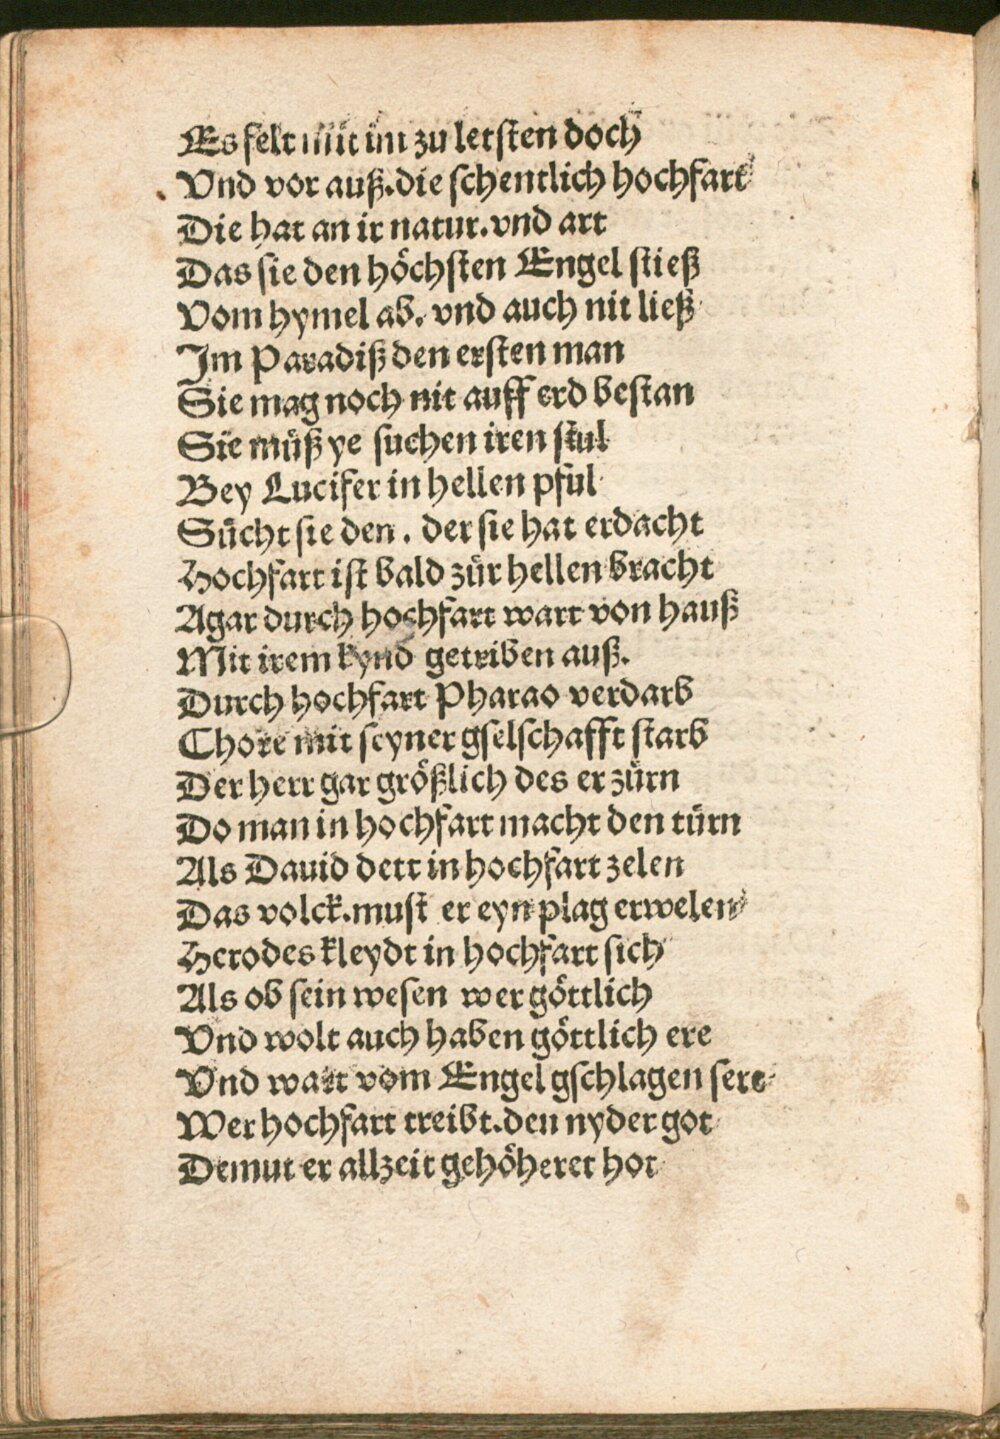 Es felt mit im zu letsten doch
Vnd vor auß.die schentlich hochfart
Die hat an ir natur.vnd art
Das sie den höchsten Engel stieß
Vom hymel ab. vnd auch nit ließ
Im Paradiß den ersten man
Sie mag noch nit auff erd bestan
Sie müß ye suchen iren stul
Bey Lucifer in hellen pful
Sücht sie den. der sie hat erdacht
Hochfart ist bald zür hellen bracht
Agar durch hochfart wart von hauß
Mit irem kynd getriben auß.
Durch hochfart Pharao verdarb
Chore mit seyner gselschafft starb
Der herr gar größlich des er zürn
Do man in hochfart macht den türn
Als Dauid dett in hochfart zelen
Das volck.must er eyn plag erwelen
Herodes kleydt in hochfart sich
Als ob sein wesen wer göttlich
Vnd wolt auch haben göttlich ere
Vnd wart vom Engel gschlagen sere
Wer hochfart treibt.den nyder got
Demut er allzeit gehöheret hot